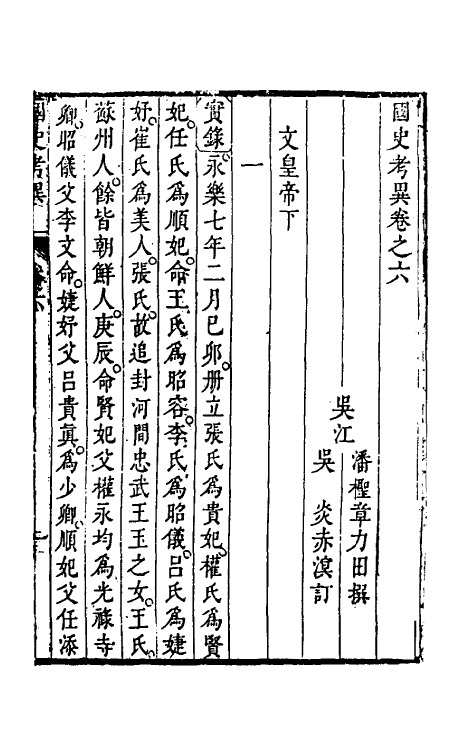 國史考異卷之六
吳江
潘檉章力田撰
吳　炎赤溟訂
文皇帝下
一
實錄永樂七年二月己卯册立張氏為貴妃權氏為賢
妃任氏為順妃命王氏為昭容李氏為昭儀呂氏為婕
妤崔氏為美人張氏故追封河間忠武王玉之女王氏
蘇州人餘皆朝鮮人庚辰命賢妃父權永均為光祿寺
卿昭儀父李文命婕妤父呂貴真為少卿順妃父任添
國史考異
卷之六